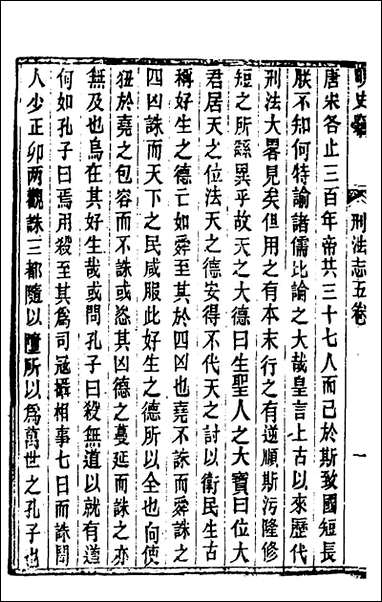 明史竊 刑法志五卷 一
唐宋各止三百年帝共三十七人而已於斯致國短長
朕不知何特諭諸儒比論之大哉皇言上古以來歷代
刑法大畧見矣但用之有本末行之有逆順斯污隆修
短之所繇異乎故天之大德曰生聖人之大寶曰位大
君居天之位法天之德安得不代天之討以衛民生古
稱好生之德亡如舜至其於四凶也堯不誅而舜誅之
四凶誅而天下之民咸服此好生之德所以全也向使
狃於堯之包容而不誅或恣其凶德之蔓延而誅之亦
無及也烏在其好生哉或問孔子曰殺無道以就有道
何如孔子曰焉用殺至其爲司寇攝相事七日而誅聞
人少正卯两觀誅三都隨以墮所以爲萬世之孔子也